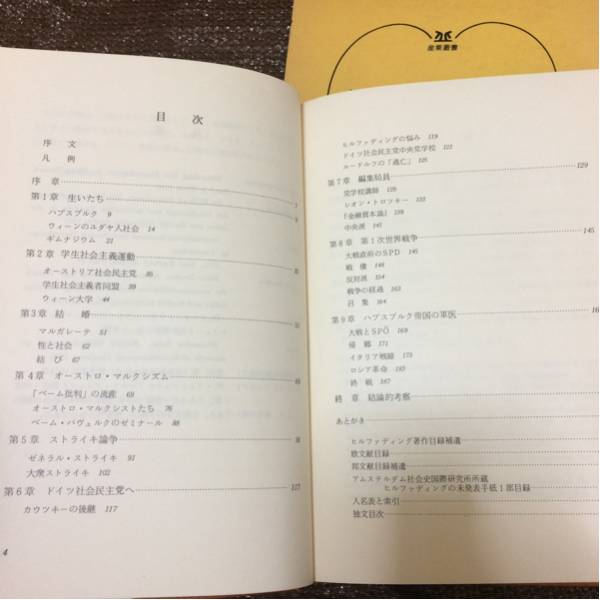 産業叢書
目次
序文
凡例
序章 7
第1章 生いたち 9
ハプスブルク 9
ウィーンのユダヤ人社会 14
ギムナジウム 21
第2章 学生社会主義運動
オーストリア社会民主党 35
学生社会主義者同盟 39
ウィーン大学 44
第3章 結婚
マルガレーテ 51
性と社会 62
結び 67
第4章 オーストロ・マルクシズム
「ベーム批判」の流産 69
オーストロ・マルクシストたち 76
ベーム・バヴェルクのゼミナール 88
第5章 ストライキ論争
ゼネラル・ストライキ 91
大衆ストライキ 102
第6章 ドイツ社会民主党へ 117
カウツキーの後継 117
4
ヒルファディングの悩み 119
ドイツ社会民主党中央党学校 122
ルードルフの「逃亡」 125
第7章 編集局員 129
党学校講師 129
レオン・トロツキー 133
『金融資本論』 139
中央派 141
第8章 第1次世界戦争 145
大戦直前のSPD 145
戦債 146
反対派 151
戦争の経過 163
召集 164
第9章 ハプスブルク帝国の軍医 16
大戦とSPÖ 169
帰郷 171
イタリア戦線 173
ロシア革命 185
終戦 187
終章 結論的考察
あとがき
ヒルファディング著作目録補遺
欧文献目録
邦文献目録補遺
アムステルダム社会史国際研究所所蔵
ヒルファディングの未発表手紙1部目録
人名表と索引
独文目次